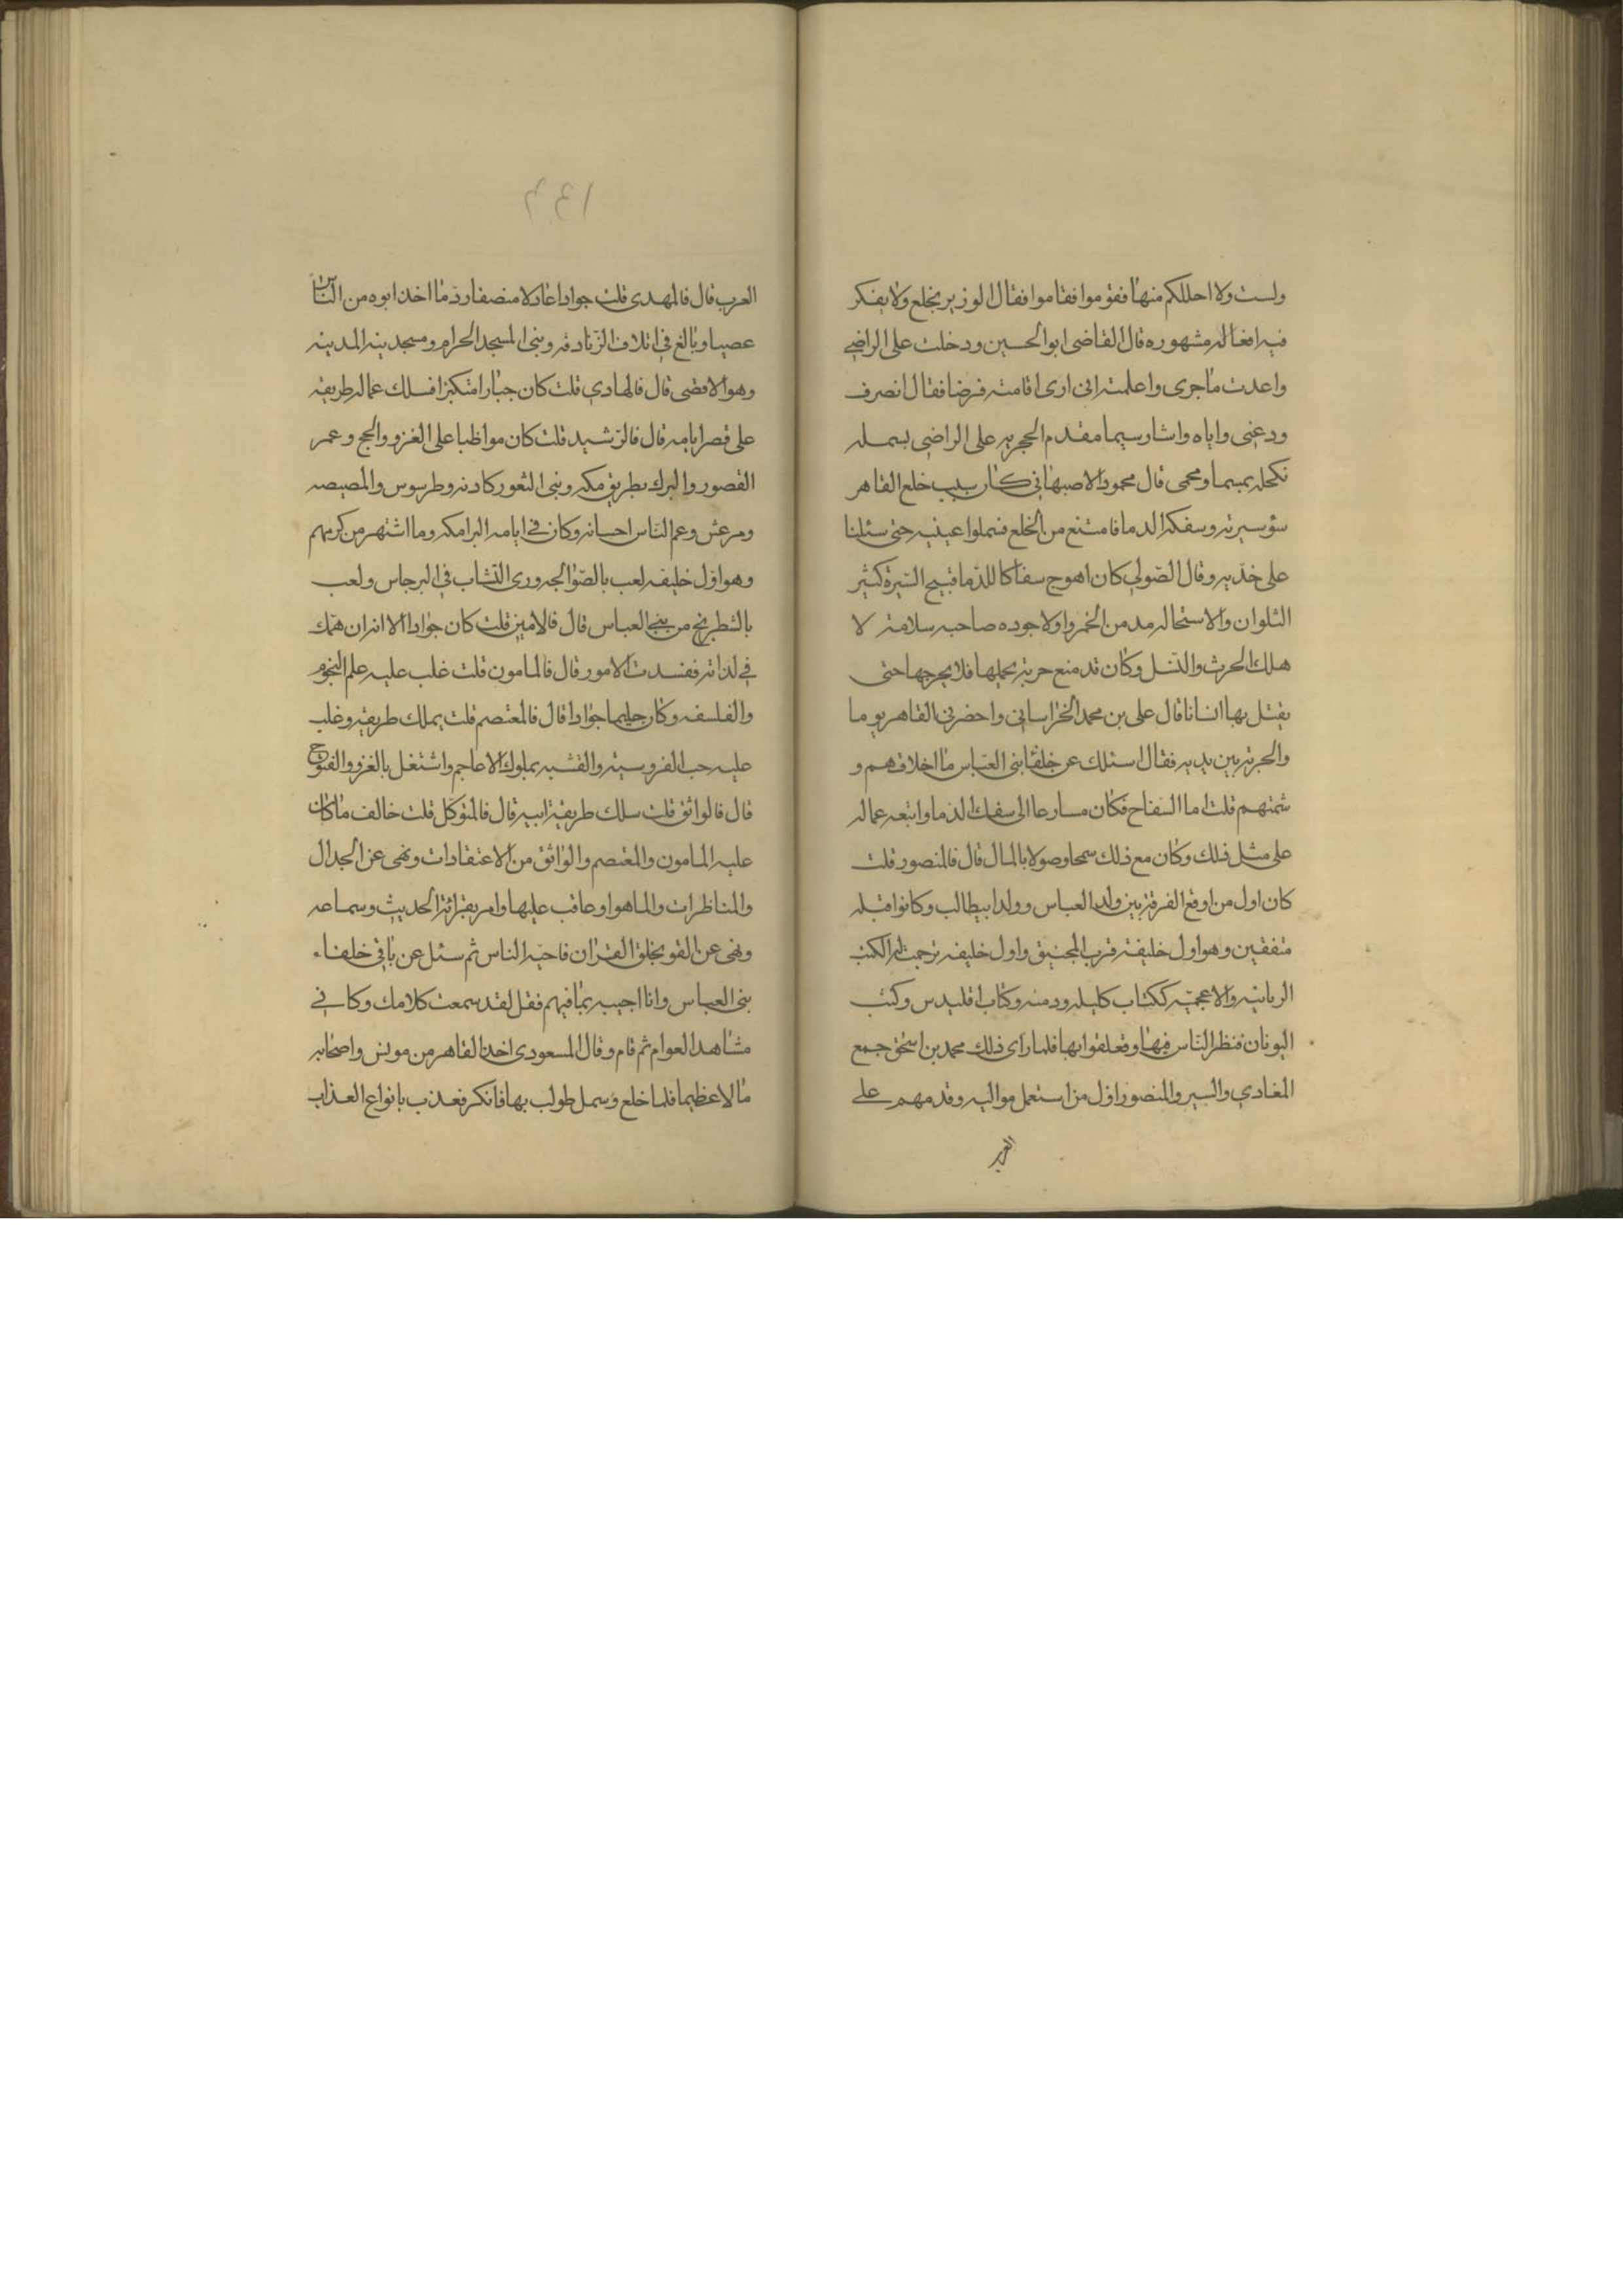 ولست ولا احللكم منها فقوموا فقاموا فقال الوزير يخلع ولا يفكر
فيه افعاله مشهوره قال القاضى ابو الحسين ودخلت على الراضى
واعدت ما جرى واعلمته انى ارى اقامته فرضا فقال انصرف
ودعنى واياه واشار سيما مقدم الحجريه على الراضى بسمله
فكحله بمسمار محمى قال محمود الاصبهانى كان سبب خلع القاهر
سؤ سيرته وسفكه الدما فامتنع من الخلع فسملوا عينيه حتى سئلنا
على خديه وقال الصولى كان اهوج سفاكا للدما قبيح السيرة كثير
التلوان والاستحاله مدمن الخمر ولولا جوده صاحبه سلامة لا
هلك الحرث والنسل وكان قد صنع حربة يحملها فلا يخرجها حتى
يقتل بها انسانا قال على بن محمد الخراسانى واحضرنى القاهر يوما
والحربة بين يديه فقال اسئلك عن خلفا بنى العباس ما اخلاقهم و
شمتهم قلت اما السفاح فكان مسارعا الى سفك الدما واتبعه عماله
على مثل ذلك وكان مع ذلك سمحا وصولا بالمال قال فالمنصور قلت
كان اول من اوقع الفرقة بين ولد العباس وولد ابيطالب وكانوا قبله
متفقين وهو اول خليفة قرب المنجنيق واول خليفه ترجمت له الكتب
السريانيه والاعجميه ككتاب كليله ودمنه وكتاب اقليدس وكتب
اليونان فنظر الناس فيها وتعلقوا بها فلما راى ذلك محمد بن اسحق جمع
المغازى والسير والمنصور اول من استعمل مواليه وقدمهم على
العرب
١٣٦
العرب قال فالمهدى قلت جوادا عادلا منصفا رد ما اخذ ابوه من الناس
غصبا وبالغ فى اتلاف الزنادقه وبنى المسجد الحرام ومسجد المدينه
وهو الاقصى قال فالهادي قلت كان جبارا متكبرا فسلك عماله طريقه
على قصر ايامه قال فالرشيد قلت كان مواظبا على الغزو والحج وعمر
القصور والبرك بطريق مكه وبنى الثغور كادنه وطرسوس والمصيصه
ومرعش وعم الناس احسانه وكان فى ايامه البرامكه وما اشتهر من كرمهم
وهو اول خليفه لعب بالصوالجه ورى النشاب فى البرجاس ولعب
بالشطرنج من بنى العباس قال فالامين قلت كان جوادا الا انه انهمك
فى لذاته ففسدت الامور قال فالمامون قلت غلب عليه علم النجوم
والفلسفه وكان حليما جوادا قال فالمعتصم قلت يملك طريقه وغلب
عليه حب الفروسيه والتشبه بملوك الاعاجم واشتغل بالغزو والفتوح
قال فالواثق قلت سلك طريقة ابيه قال فالمتوكل قلت خالف ما كان
عليه المامون والمعتصم والواثق من الاعتقادات ونهى عن الجدال
والمناظرات والاهوا وعاقب عليها وامر بقرائة الحديث وسماعه
ونهى عن القول بخلق القران فاحبه الناس ثم سئل عن باقى خلفاء
بنى العباس وانا اجيبه بما فيهم فقال لقد سمعت كلامك وكانى
مشاهدا لعوام ثم قام وقال المسعودى اخذ القاهر من مونس واصحابه
مالا عظيما فلما خلع وسمل طولب بها فانكر فعذب بانواع العذاب